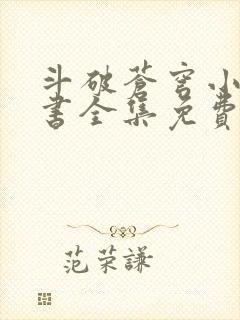 斗破苍穹小
书全集免費
范荣謙